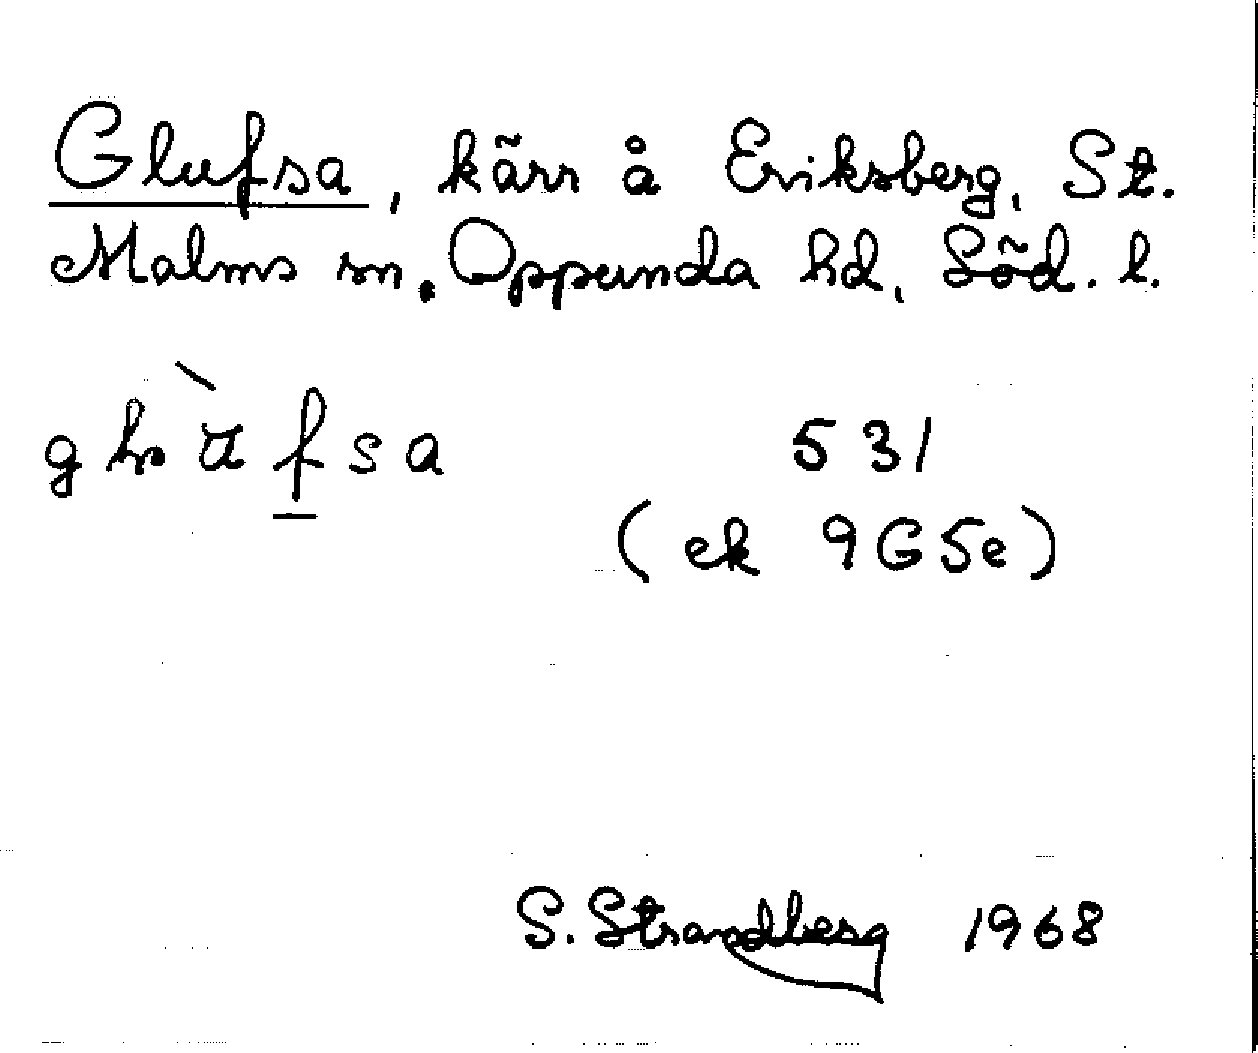 Glufsa, kärr å Eriksberg, St.
Malms sn. Oppunda hd, Söd. l.
531
(ek 9G5e)
S. Strandberg 1968